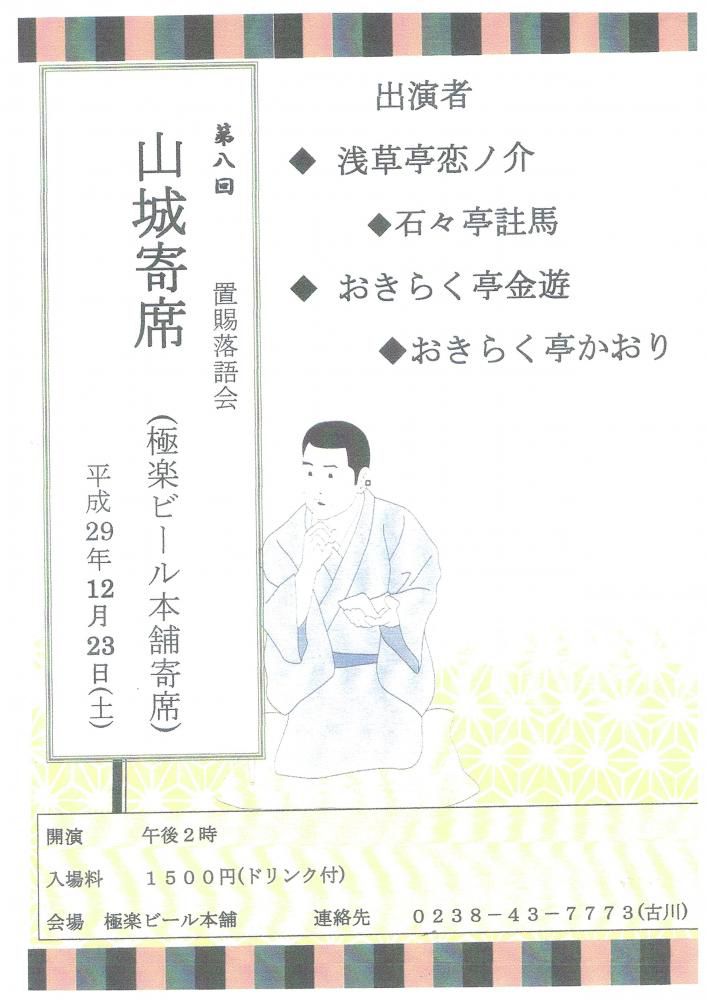 出演者
◆ 浅草亭恋ノ介
◆石々亭註馬
◆ おきらく亭金遊
◆おきらく亭かおり
第八回
置賜落語会
山城寄席
(極楽ビール本舗寄席)
平成29年12月23日(土)
開演 午後2時
入場料 1500円(ドリンク付)
会場 極楽ビール本舗 連絡先 0238-43-7773(古川)